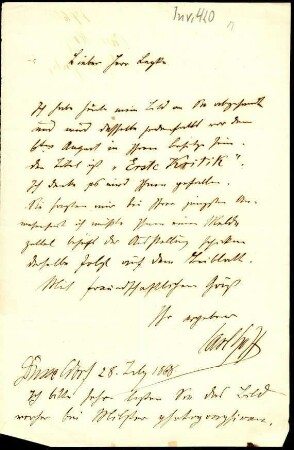 Inv. 420
Lieber Herr Lepke
Ich habe heute mein Bild an Sie abgesandt
und wird dasselbe jedenfalls vor dem
6ten August in Ihrem Besitze sein.
Der Titel ist „Erste Kritik“.
Ich denke es wird Ihnen gefallen.
Sie sagten mir bei Ihrer jüngsten An-
wesenheit ich müßte Ihnen einen Melde
zettel behufs der Ausstellung schicken
derselbe folgt auf dem Beiblatt.
Mit freundschaftlichem Gruß
Ihr ergebener
Carl Hoff
Düsseldorf 28. July 1868
Ich bitte sehr lassen Sie das Bild
vorher bei photographiren.